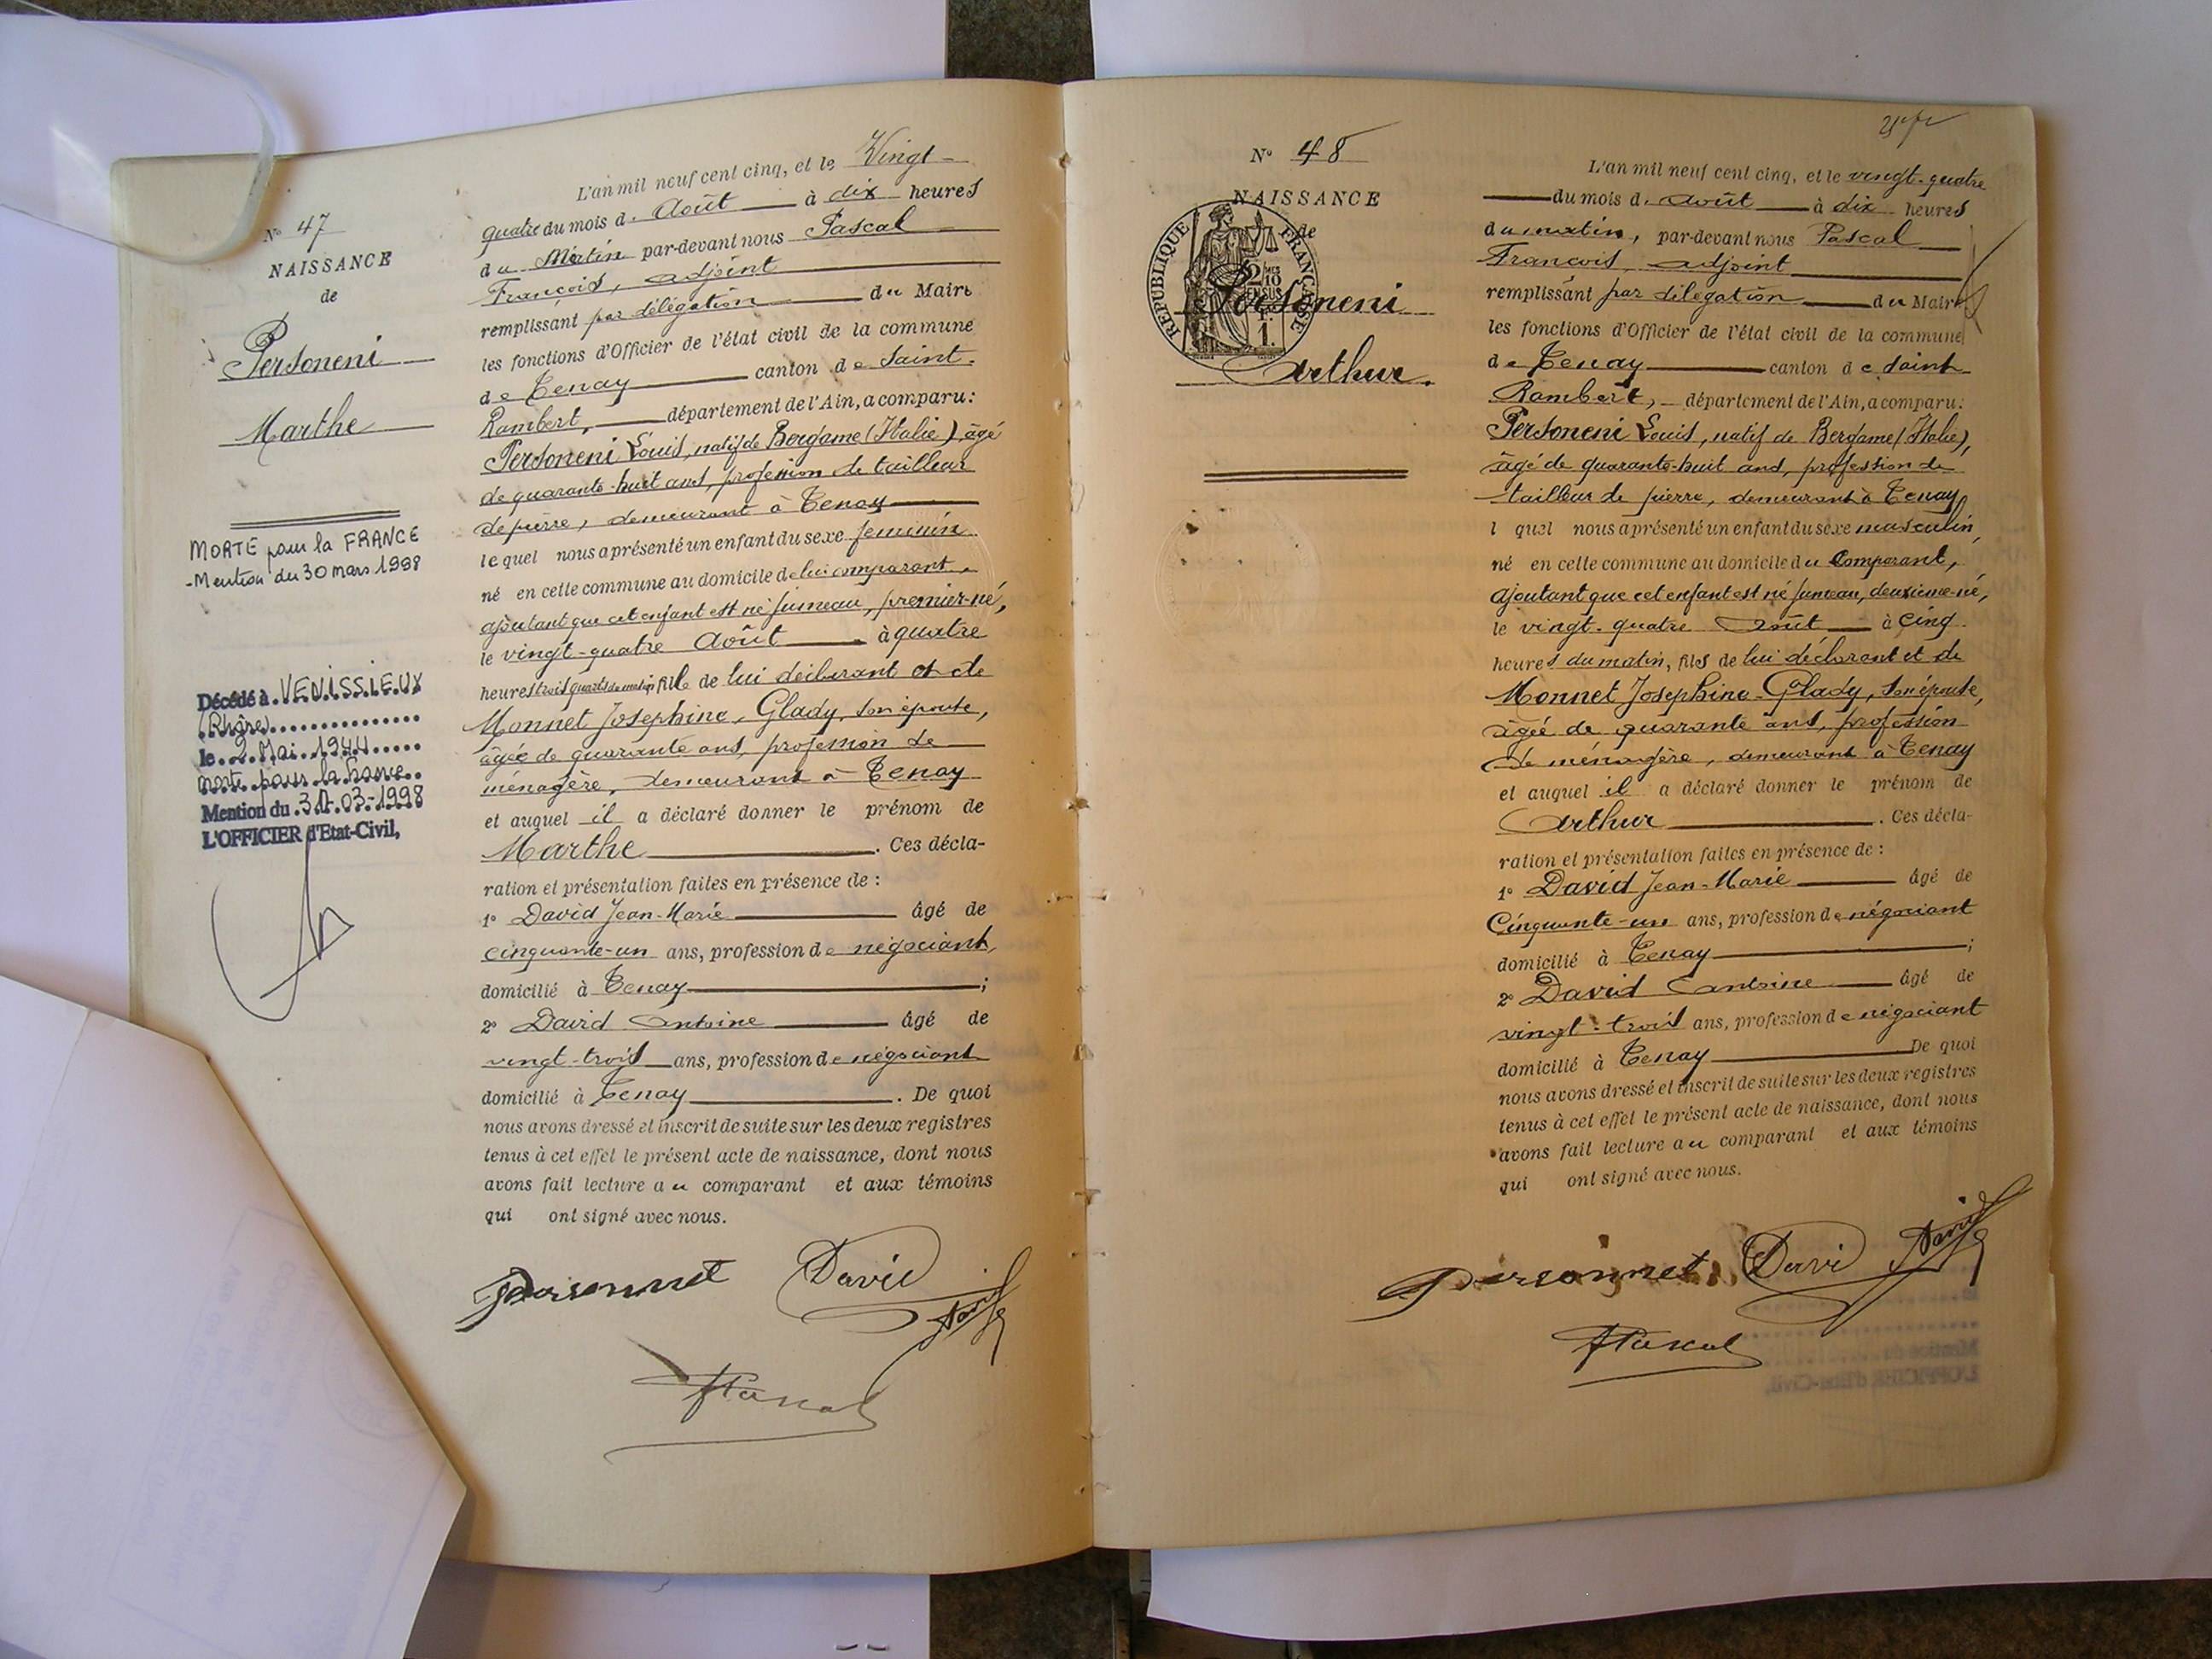 N° 47
NAISSANCE
de
Personeni
Marthe
MORTE pour la FRANCE
-Mention du 30 mars 1998
Décédé à VENISSIEUX
(Rhône)
le 2 Mai 1944
morte pour la France
Mention du 30-03-1998
L'OFFICIER d'Etat-Civil,
L'an mil neuf cent cinq, et le Vingt-
quatre du mois d. Août à dix heures
du Matin par-devant nous Pascal
François, adjoint
remplissant par délégation du Maire
les fonctions d'Officier de l'état civil de la commune
de Tenay canton de Saint-
Rambert, département de l'Ain, a comparu:
Personeni Louis, natif de Bergame (Italie), âgé
de quarante-huit ans, profession de tailleur
de pierre, demeurant à Tenay
le quel nous a présenté un enfant du sexe féminin
né en cette commune au domicile de lui comparant,
ajoutant que cet enfant est né jumeau, premier-né,
le vingt-quatre Août à quatre
heures trois quarts du matin fille de lui déclarant et de
Monnet Josephine, Glady, son épouse,
âgée de quarante ans, profession de
ménagère, demeurant à Tenay
et auquel il a déclaré donner le prénom de
Marthe. Ces décla-
ration et présentation faites en présence de :
1° David Jean-Marie âgé de
cinquante-un ans, profession de négociant,
domicilié à Tenay ;
2° David Antoine âgé de
vingt-trois ans, profession de négociant
domicilié à Tenay. De quoi
nous avons dressé et inscrit de suite sur les deux registres
tenus à cet effet le présent acte de naissance, dont nous
avons fait lecture au comparant et aux témoins
qui ont signé avec nous.
Personnet David
David
FPascal
N° 48
NAISSANCE
de
RÉPUBLIQUE FRANÇAISE
Personeni
Arthur.
L'an mil neuf cent cinq, et le vingt-quatre
du mois d. Août à dix heures
du matin, par-devant nous Pascal
François, adjoint
remplissant par délégation du Maire
les fonctions d'Officier de l'état civil de la commune
de Tenay canton de Saint-
Rambert, département de l'Ain, a comparu:
Personeni Louis, natif de Bergame (Italie),
âgé de quarante-huit ans, profession de
tailleur de pierre, demeurant à Tenay,
l quel nous a présenté un enfant du sexe masculin,
né en cette commune au domicile du Comparant,
ajoutant que cet enfant est né jumeau, deuxième-né,
le vingt-quatre Août à cinq
heures du matin, fils de lui déclarant et de
Monnet Josephine-Glady, son épouse,
âgée de quarante ans, profession
de ménagère, demeurant à Tenay
et auquel il a déclaré donner le prénom de
Arthur. Ces décla-
ration et présentation faites en présence de :
1° David Jean-Marie âgé de
Cinquante-un ans, profession de négociant
domicilié à Tenay ;
2° David Antoine âgé de
vingt-trois ans, profession de négociant
domicilié à Tenay De quoi
nous avons dressé et inscrit de suite sur les deux registres
tenus à cet effet le présent acte de naissance, dont nous
avons fait lecture au comparant et aux témoins
qui ont signé avec nous.
Personnet Davi David
FPascal